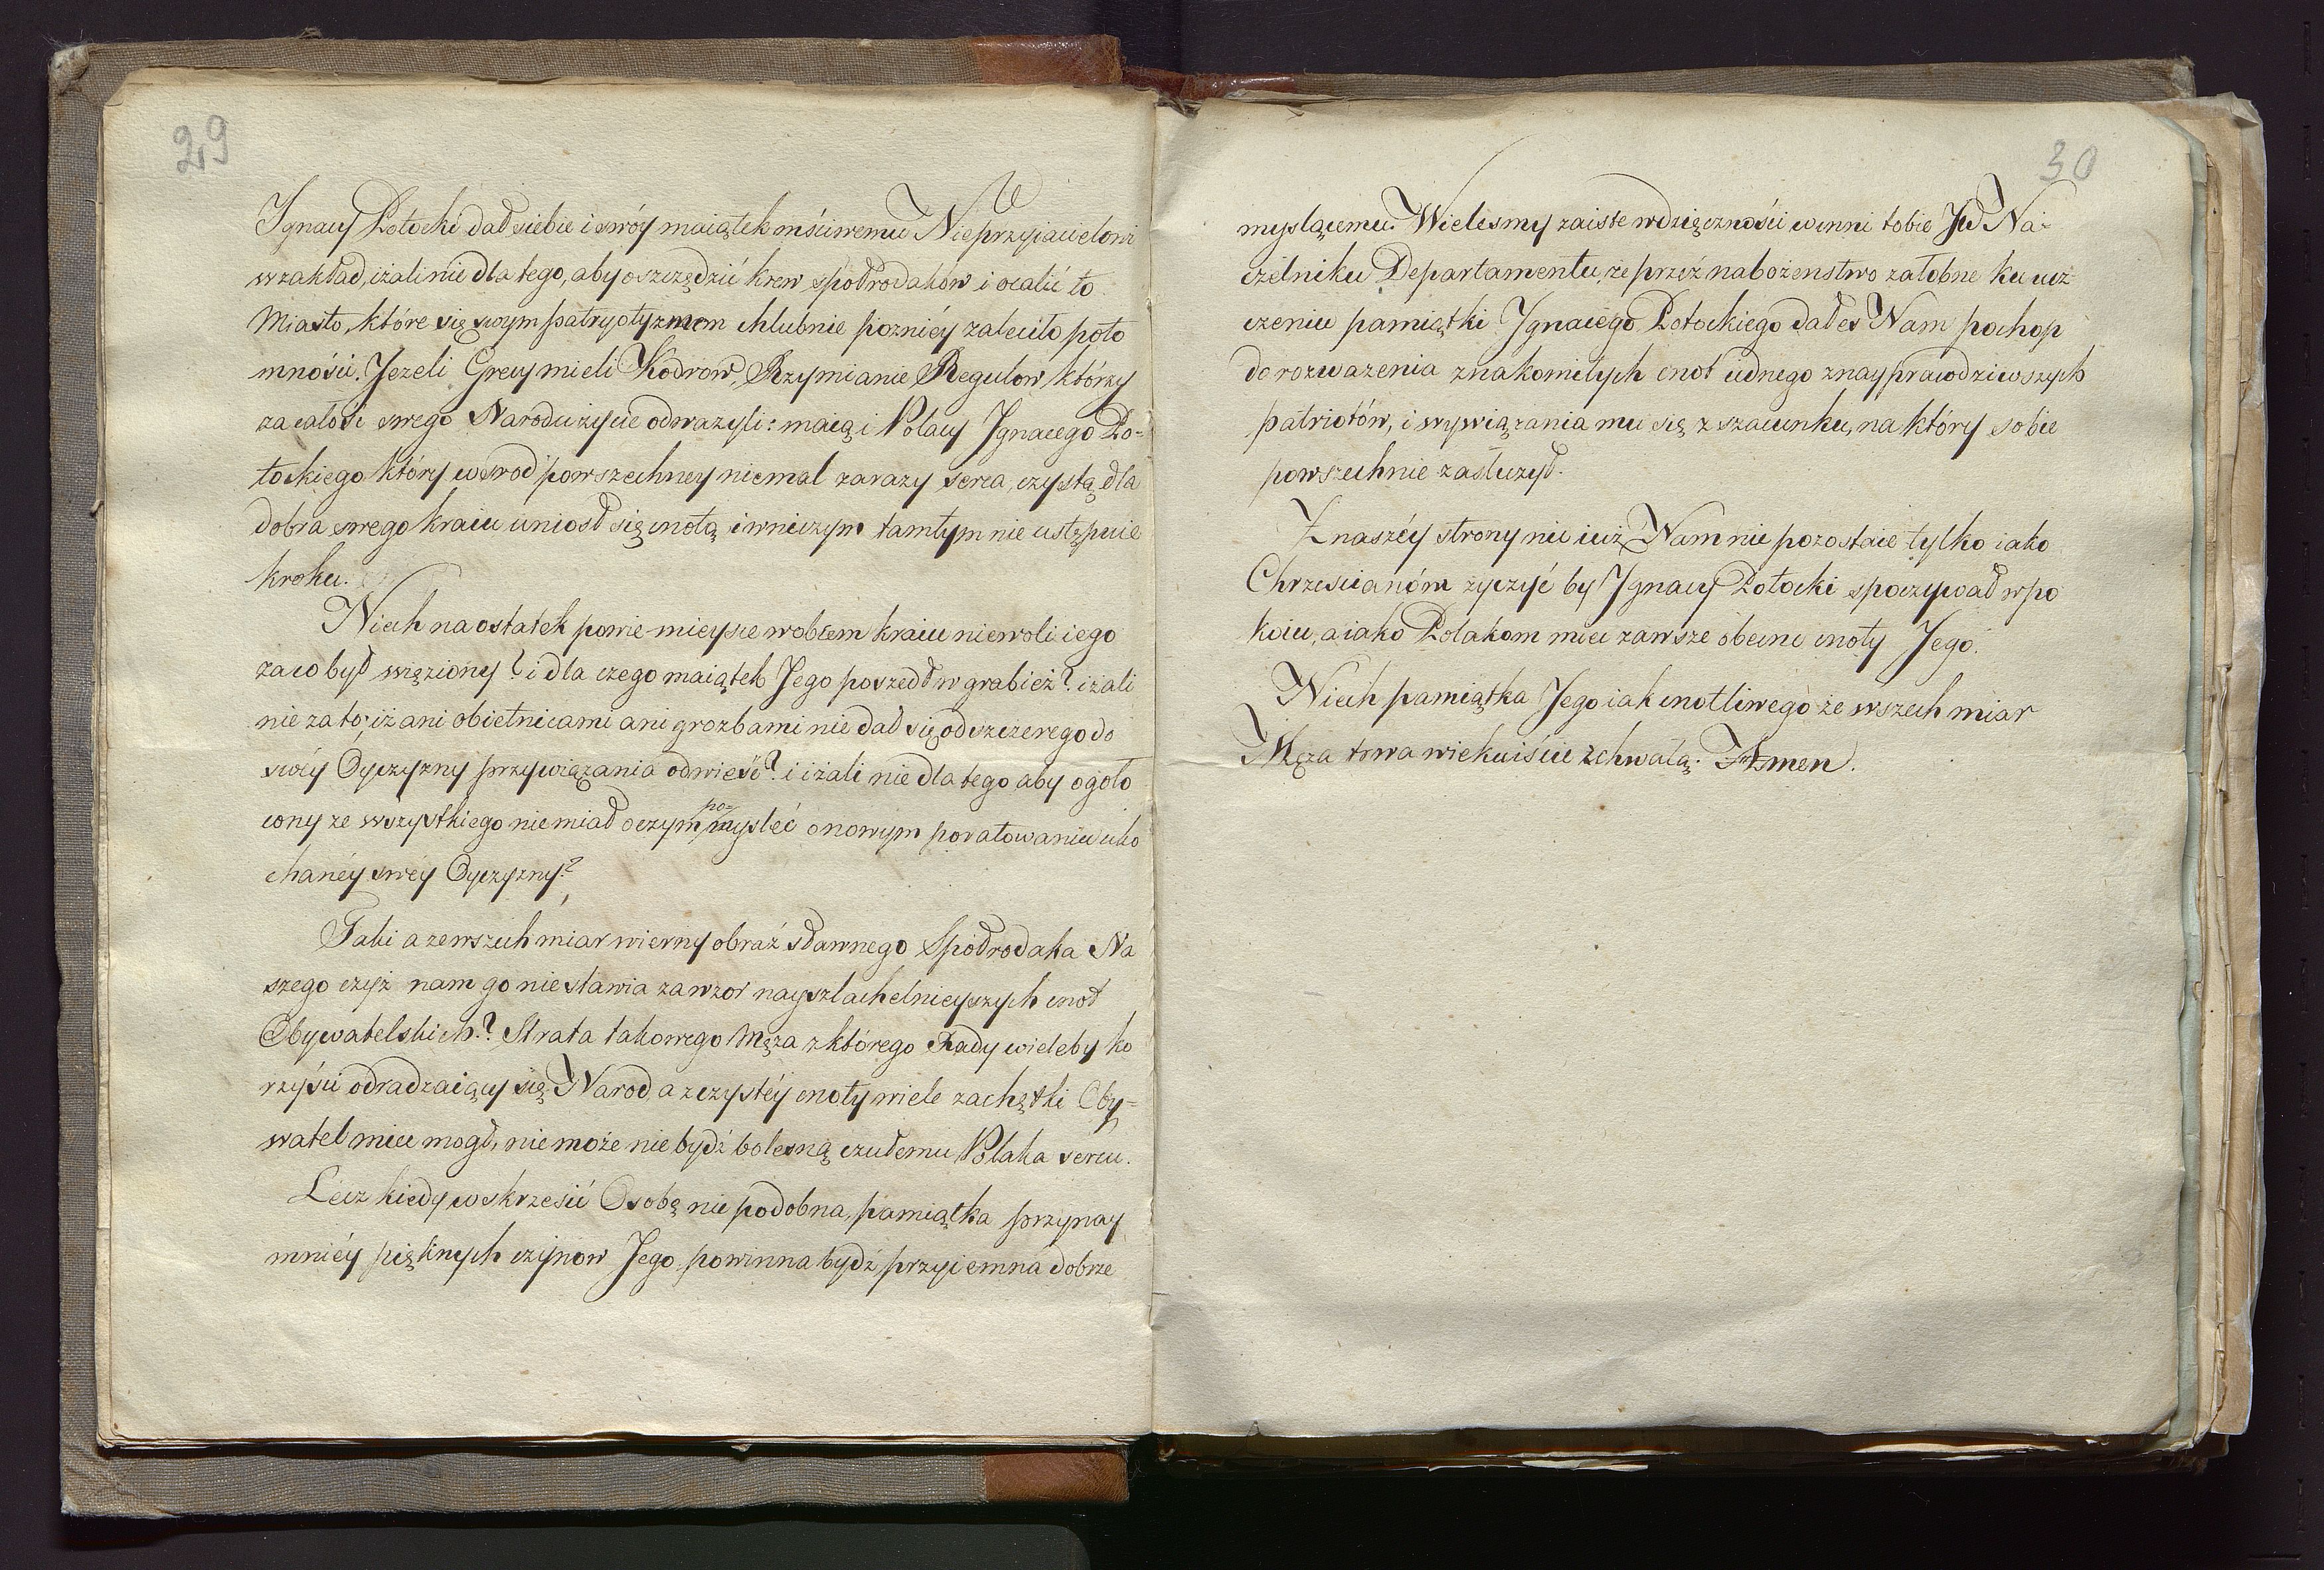 29
Ignacy Potocki dał siebie i swóy maiątek mściwemu Nieprzyiacielowi
w zakład, iżali nie dla tego, aby oszczędzić krew spółrodaków i ocalić to
Miasto, które się swym patryotyzmem chlubnie pozniéy zaleciło poto
mności. Jeżeli Grecy mieli Kodrow, Rzymianie Regulow, którzy
za całość swego Narodu życie odważyli: maią i Polacy Ignacego Po-
tockiego który wsrod powszechney niemal zarazy serca, czystą dla
dobra swego kraiu uniosł się cnotą i wniczym tamtym nie ustępuie
kroku.
Niech na ostatek powie mieysce w obcem kraiu niewoli iego
za co był więziony? i dla czego maiątek Jego poszedł w grabież? iżali
nie za to; iż ani obietnicami ani grozbami nie dał się od szczerego do
swéy Oyczyzny przywiązania odwieść? i iżali nie dla tego aby ogoło
cony ze wszystkiego nie miał o czym po- mysleć o nowym poratowaniu uko
chanéy swéy Oyczyzny?
Taki a ze wszech miar wierny obraź sławnego Spółrodaka Na
szego czyż nam go nie stawia za wzor nayszlachetnieyszych cnot
Obywatelskich? Strata takowego Męża z którego Rady wieleby ko
rzyści odradzaiący się Narod, a z czystéy cnoty wiele zachętki Oby-
watel mieć mogł, nie może nie bydź bolesną czułemu Polaka sercu.
Lecz kiedy wskrzesić Osobę nie podobna, pamiątka przynay
mniéy pięknych czynow Jego powinna bydź przyiemna dobrze
30
myslącemu. Wielesmy zaiste wdzięczności winni tobie JW Na-
czelniku Departamentu, że przéz nabożenstwo załobne ku ucz
czeniu pamiątki Ignacego Potockiego dałes Nam pochop
do rozwazenia znakomitych cnot iednego z nayprawdziwszych
patriotów, i wywiązania mu się z szacunku, na który sobie
powszechnie zasłużył.
Z naszéy strony nic iuż Nam nie pozostaie tylko iako
Chrzescianóm życzyć by Ignacy Potocki spoczywał w po
koiu, a iako Polakom mieć zawsze obecne cnoty Jego.
Niech pamiątka Jego iak cnotliwego ze wszech miar
Męża trwa wiekuiście z chwałą. Amen.